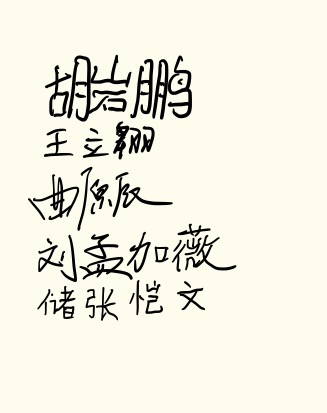 胡岩鹏
王立翱
曲原辰
刘孟加薇
储张恺文